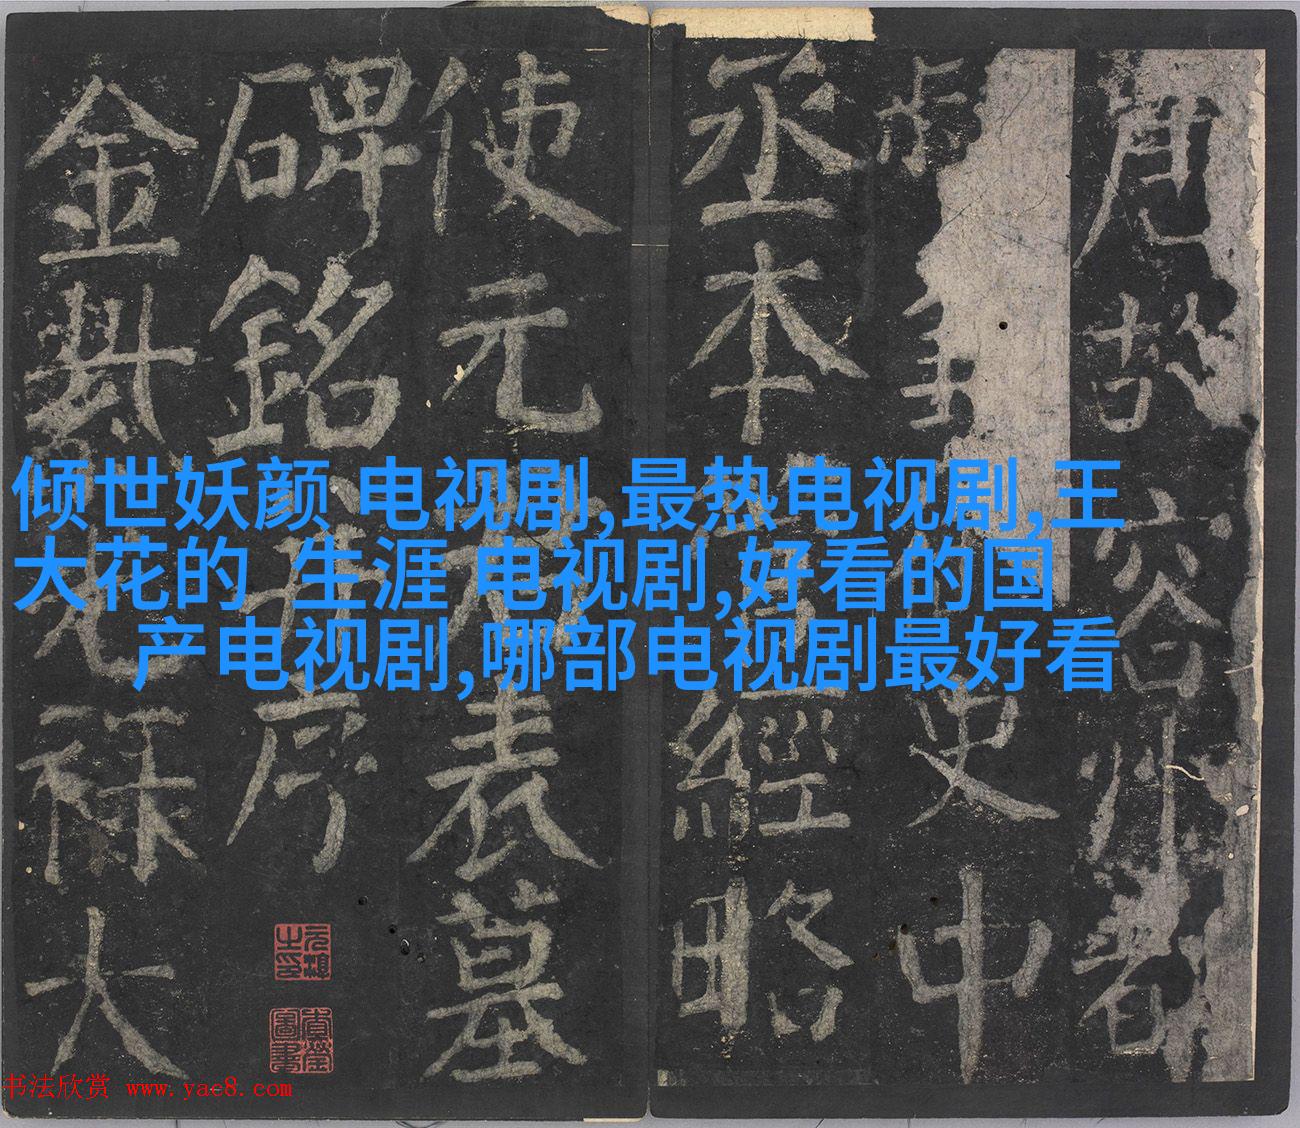 唐故容州都
史中
丞本經略
使元表墓
碑銘并序
金紫光祿大
倾世妖颜 电视剧,最热电视剧,王
大花的 生涯 电视剧,好看的国
产电视剧,哪部电视剧最好看
书法欣赏 www.yac8.com